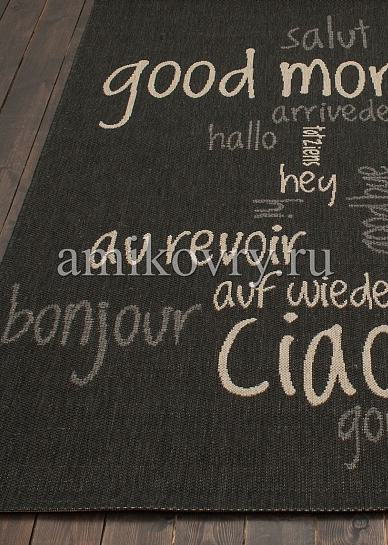 salut
good mor
arrivede
hallo
tot ziens
hey
hi
goodbye
au revoir
amikovry.ru
auf wiede
bonjour
ciao
go